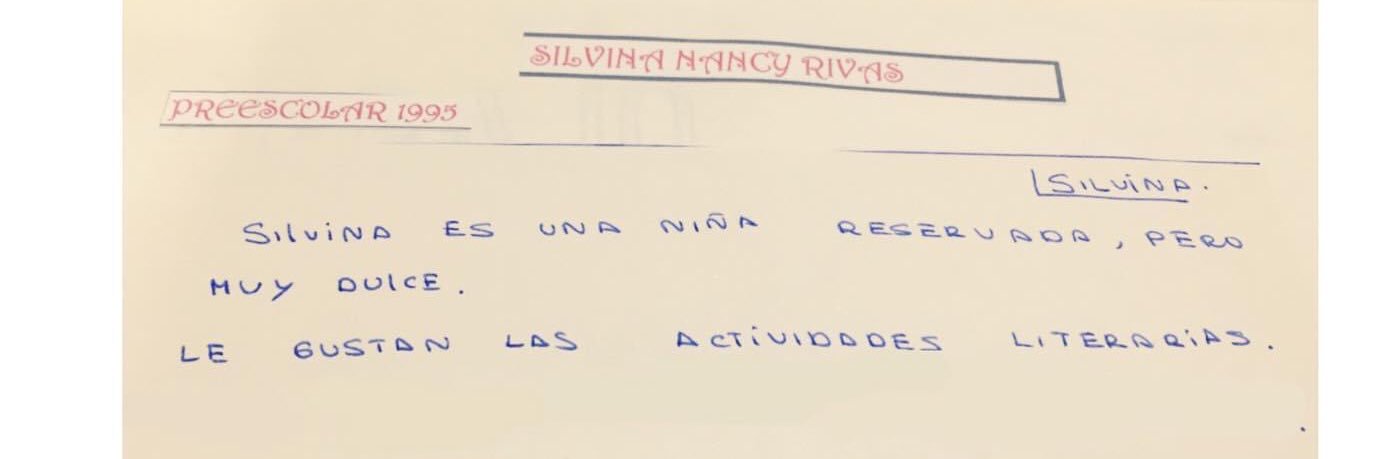 SILVINA NANCY RIVAS
PREESCOLAR 1995
SILVINA.
SILVINA ES UNA NIÑA RESERVADA, PERO
MUY DULCE.
LE GUSTAN LAS ACTIVIDADES LITERARIAS.